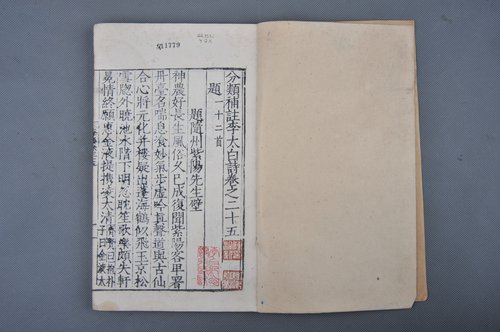 1779
分類補註李太白詩卷之二十五
題一十二首
題隨州紫陽先生壁
神農好長生風俗久已成復聞紫陽客早署
丹臺名喘息飡妙氣步虛吟真聲道與古仙
合心將元化并樓疑出蓬海鶴似飛玉京松
雪牕外曉池水階下明忽耽笙歌樂頗失軒
冕情終願惠金液提攜凌太清齊賢曰抱朴
子曰金液太